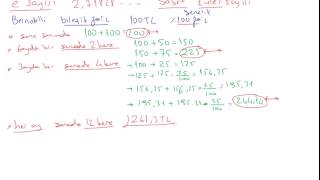 e sayısı 2,71828... sabit Euler sayısı
Bernoulli bileşik faiz 100TL senelik %100 faiz
* sene sonunda 100+100=200
6 ayda bir senede 2 kere 100+50=150
→150+75=225
3 ayda bir senede 4 kere 100+25=125
→125+125.25/100=156,25
→156,25+156,25.25/100=195,31
→195,31+195,31.25/100=244,14
* her ay senede 12 kere 261,3TL